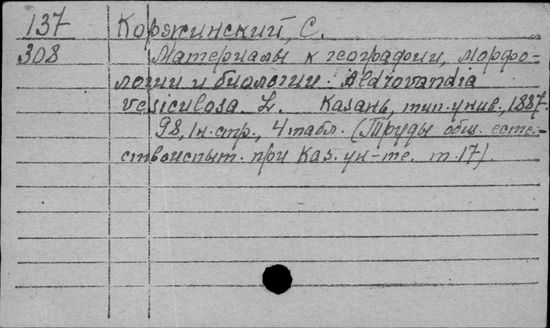 137 Коржинский, С.
308 Материалы к географии, морфо-
логии и биологии Aldrovandia
vesiculosa L. Казань, тип. унив., 1887.
98, 1 н. стр., 4 табл. (Труды общ. есте-
ствоиспыт. при Каз. ун-те. т. 17).